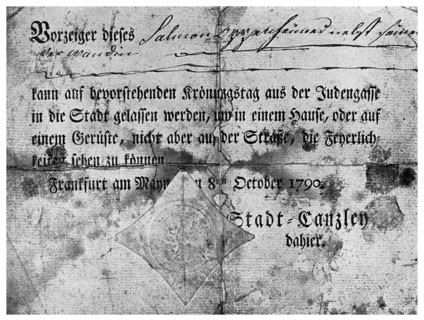 Vorzeiger dieses Salmon Oppenheimer nebst seiner
Verwandin
kann auf bevorstehenden Krönungstag aus der Judengasse
in die Stadt gelassen werden, um in einem Hause, oder auf
einem Gerüste, nicht aber auf der Straße, die Feyerlich-
keiten sehen zu können
Frankfurt am Mayn den 8ten October 1790.
Stadt-Canzley
dahier.